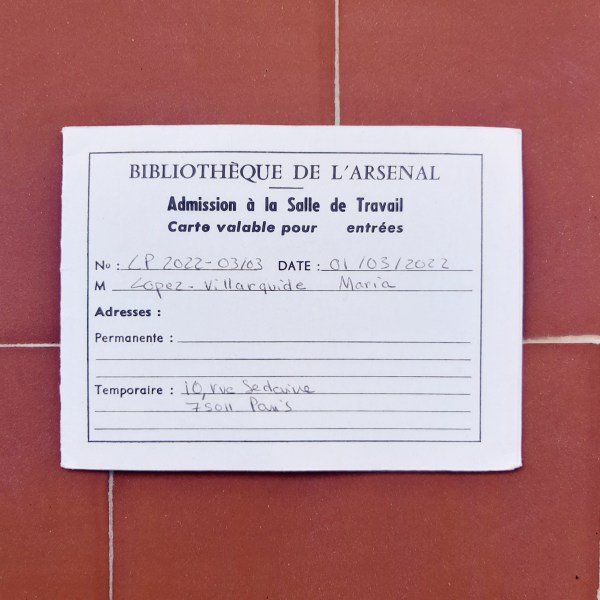 BIBLIOTHÈQUE DE L'ARSENAL
Admission à la Salle de Travail
Carte valable pour entrées
No : LP 2022-03/03 DATE : 01/03/2022
M López-Villarquide María
Adresses :
Permanente :
Temporaire : 10, rue Sedaine
75011 Paris